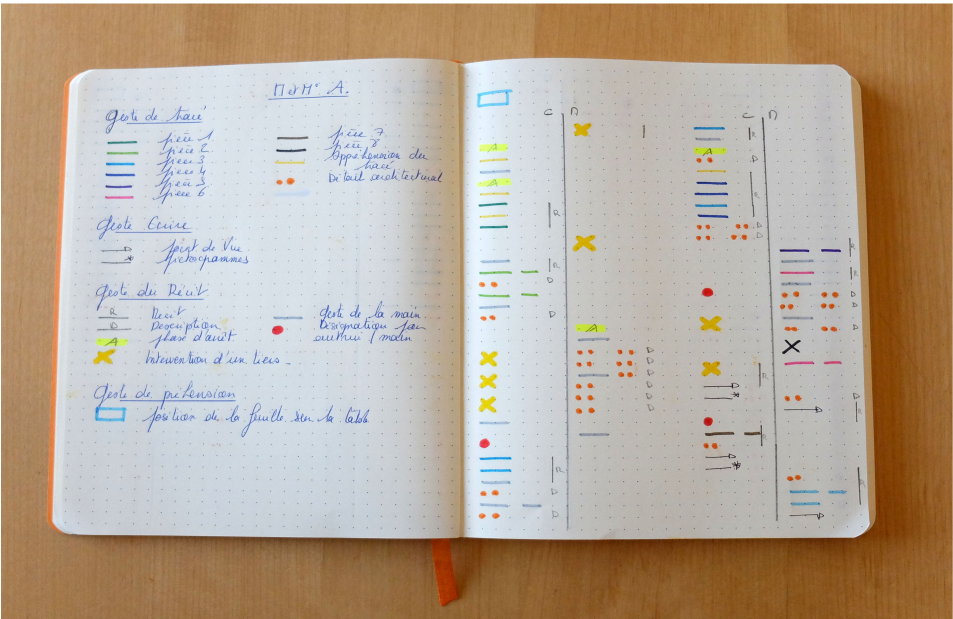 M et Mme A.
Geste de tracé
pièce 1
pièce 2
pièce 3
pièce 4
pièce 5
pièce 6
pièce 7
pièce 8
Appréhension du tracé
Détail architectural
Geste Ecrire
point de vue
Pictogrammes
Geste du Récit
R Récit
D Description
A phase d'arrêt
Intervention d'un tiers
geste de la main
Désignation par
autrui / main
Geste de préhension
position de la feuille sur la table
C D
A
A
R
R
D
D
R
D
D
A
D
D
D
D
D
C D
R
A
D
R
D
D
R
R
R
R
D
D
D
D
R
R